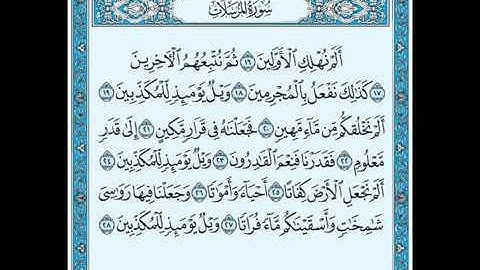 سُورَةُ المُرْسَلَات
أَلَمْ نُهْلِكِ ٱلْأَوَّلِينَ ١٦ ثُمَّ نُتْبِعُهُمُ ٱلْآخِرِينَ
١٧ كَذَٰلِكَ نَفْعَلُ بِٱلْمُجْرِمِينَ ١٨ وَيْلٌ يَوْمَئِذٍ لِّلْمُكَذِّبِينَ ١٩
أَلَمْ نَخْلُقكُّم مِّن مَّآءٍ مَّهِينٍ ٢٠ فَجَعَلْنَٰهُ فِى قَرَارٍ مَّكِينٍ ٢١ إِلَىٰ قَدَرٍ
مَّعْلُومٍ ٢٢ فَقَدَرْنَا فَنِعْمَ ٱلْقَٰدِرُونَ ٢٣ وَيْلٌ يَوْمَئِذٍ لِّلْمُكَذِّبِينَ ٢٤
أَلَمْ نَجْعَلِ ٱلْأَرْضَ كِفَاتًا ٢٥ أَحْيَآءً وَأَمْوَٰتًا ٢٦ وَجَعَلْنَا فِيهَا رَوَٰسِىَ
شَٰمِخَٰتٍ وَأَسْقَيْنَٰكُم مَّآءً فُرَاتًا ٢٧ وَيْلٌ يَوْمَئِذٍ لِّلْمُكَذِّبِينَ ٢٨